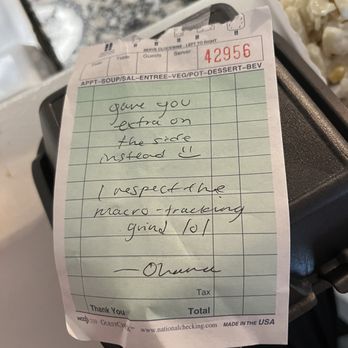 SERVE CLOCKWISE - LEFT TO RIGHT
Date Table Guests Server
42956
APPT-SOUP/SAL-ENTREE-VEG/POT-DESSERT-BEV
gave you
extra on
the side
instead
I respect the
macro-tracking
grind lol
— Ohana
Tax
Thank You Total
GUESTCHECK™ www.nationalchecking.com MADE IN THE USA